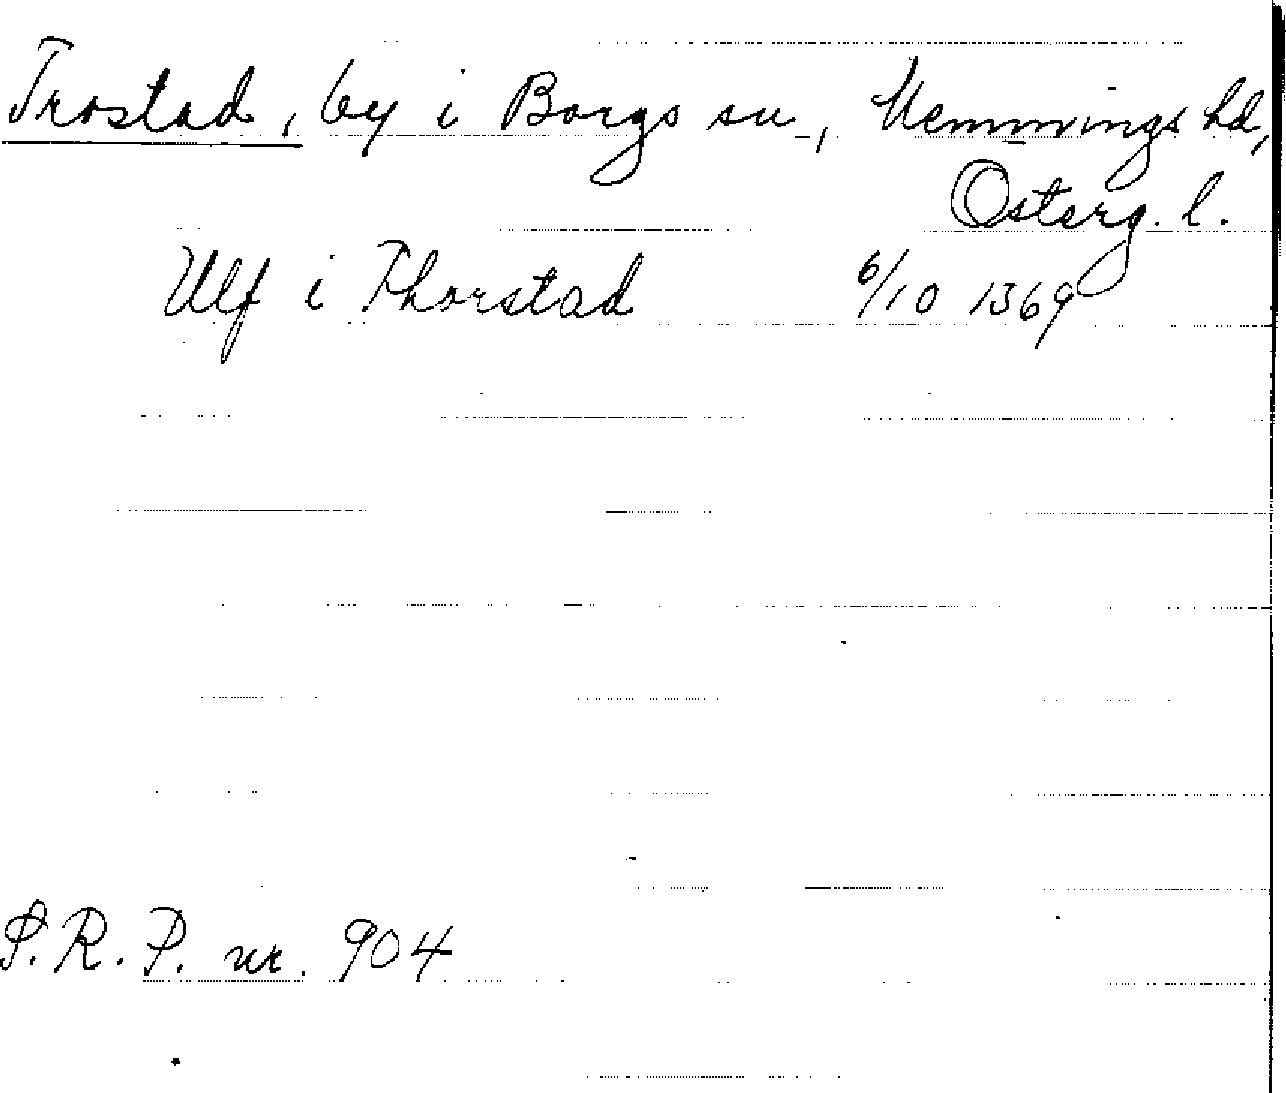 Trostad, by i Borgs sn, Memmings hd,
Österg. l.
Ulf i Thorstad 6/10 1369
S.R.P. nr. 904